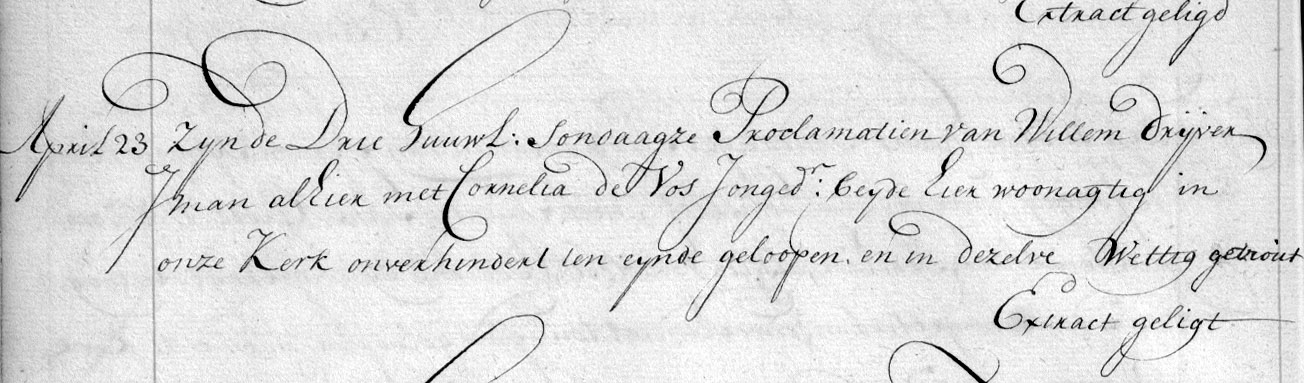 Extract geligd
April 23 Zyn de Drie Huuwl: Sondaagze Proclamatien van Willem Drijver
Jman alhier met Cornelia de Vos Jongedr: beyde hier woonagtig in
onze Kerk onverhindert ten eynde geloopen. en in dezelve Wettig getrout
Extract geligt